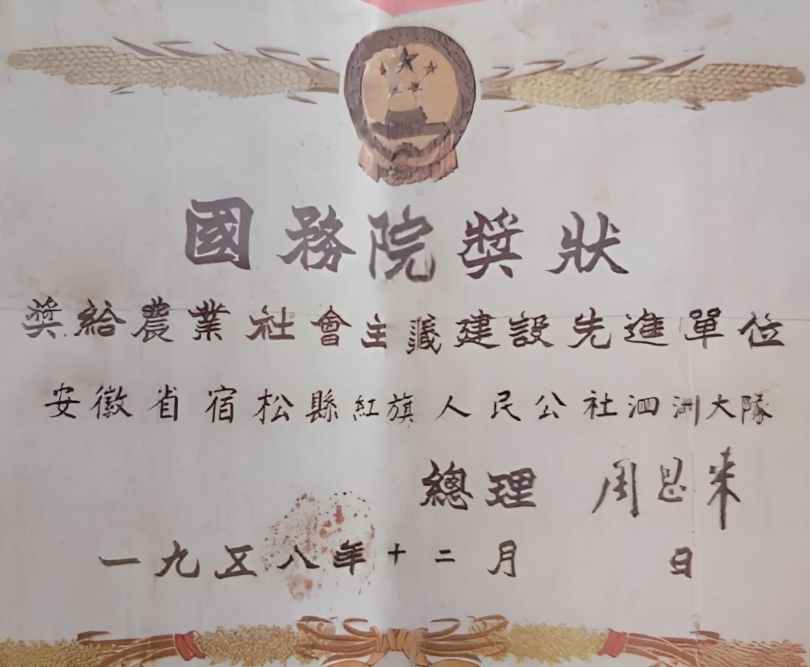 國務院獎狀
獎給農業社會主義建設先進單位
安徽省宿松縣紅旗人民公社泗洲大隊
總理 周恩来
一九五八年十二月 日